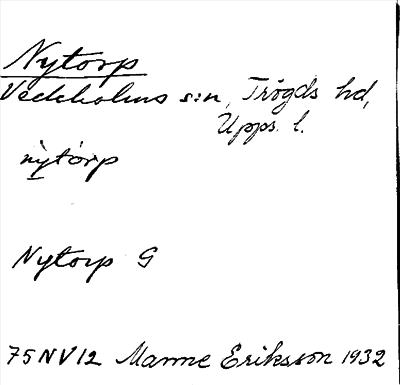 Nytorp
Veckholms s:n, Trögds hd,
Upps. l.
nỳtórp
Nytorp G
75NV12 Manne Eriksson 1932